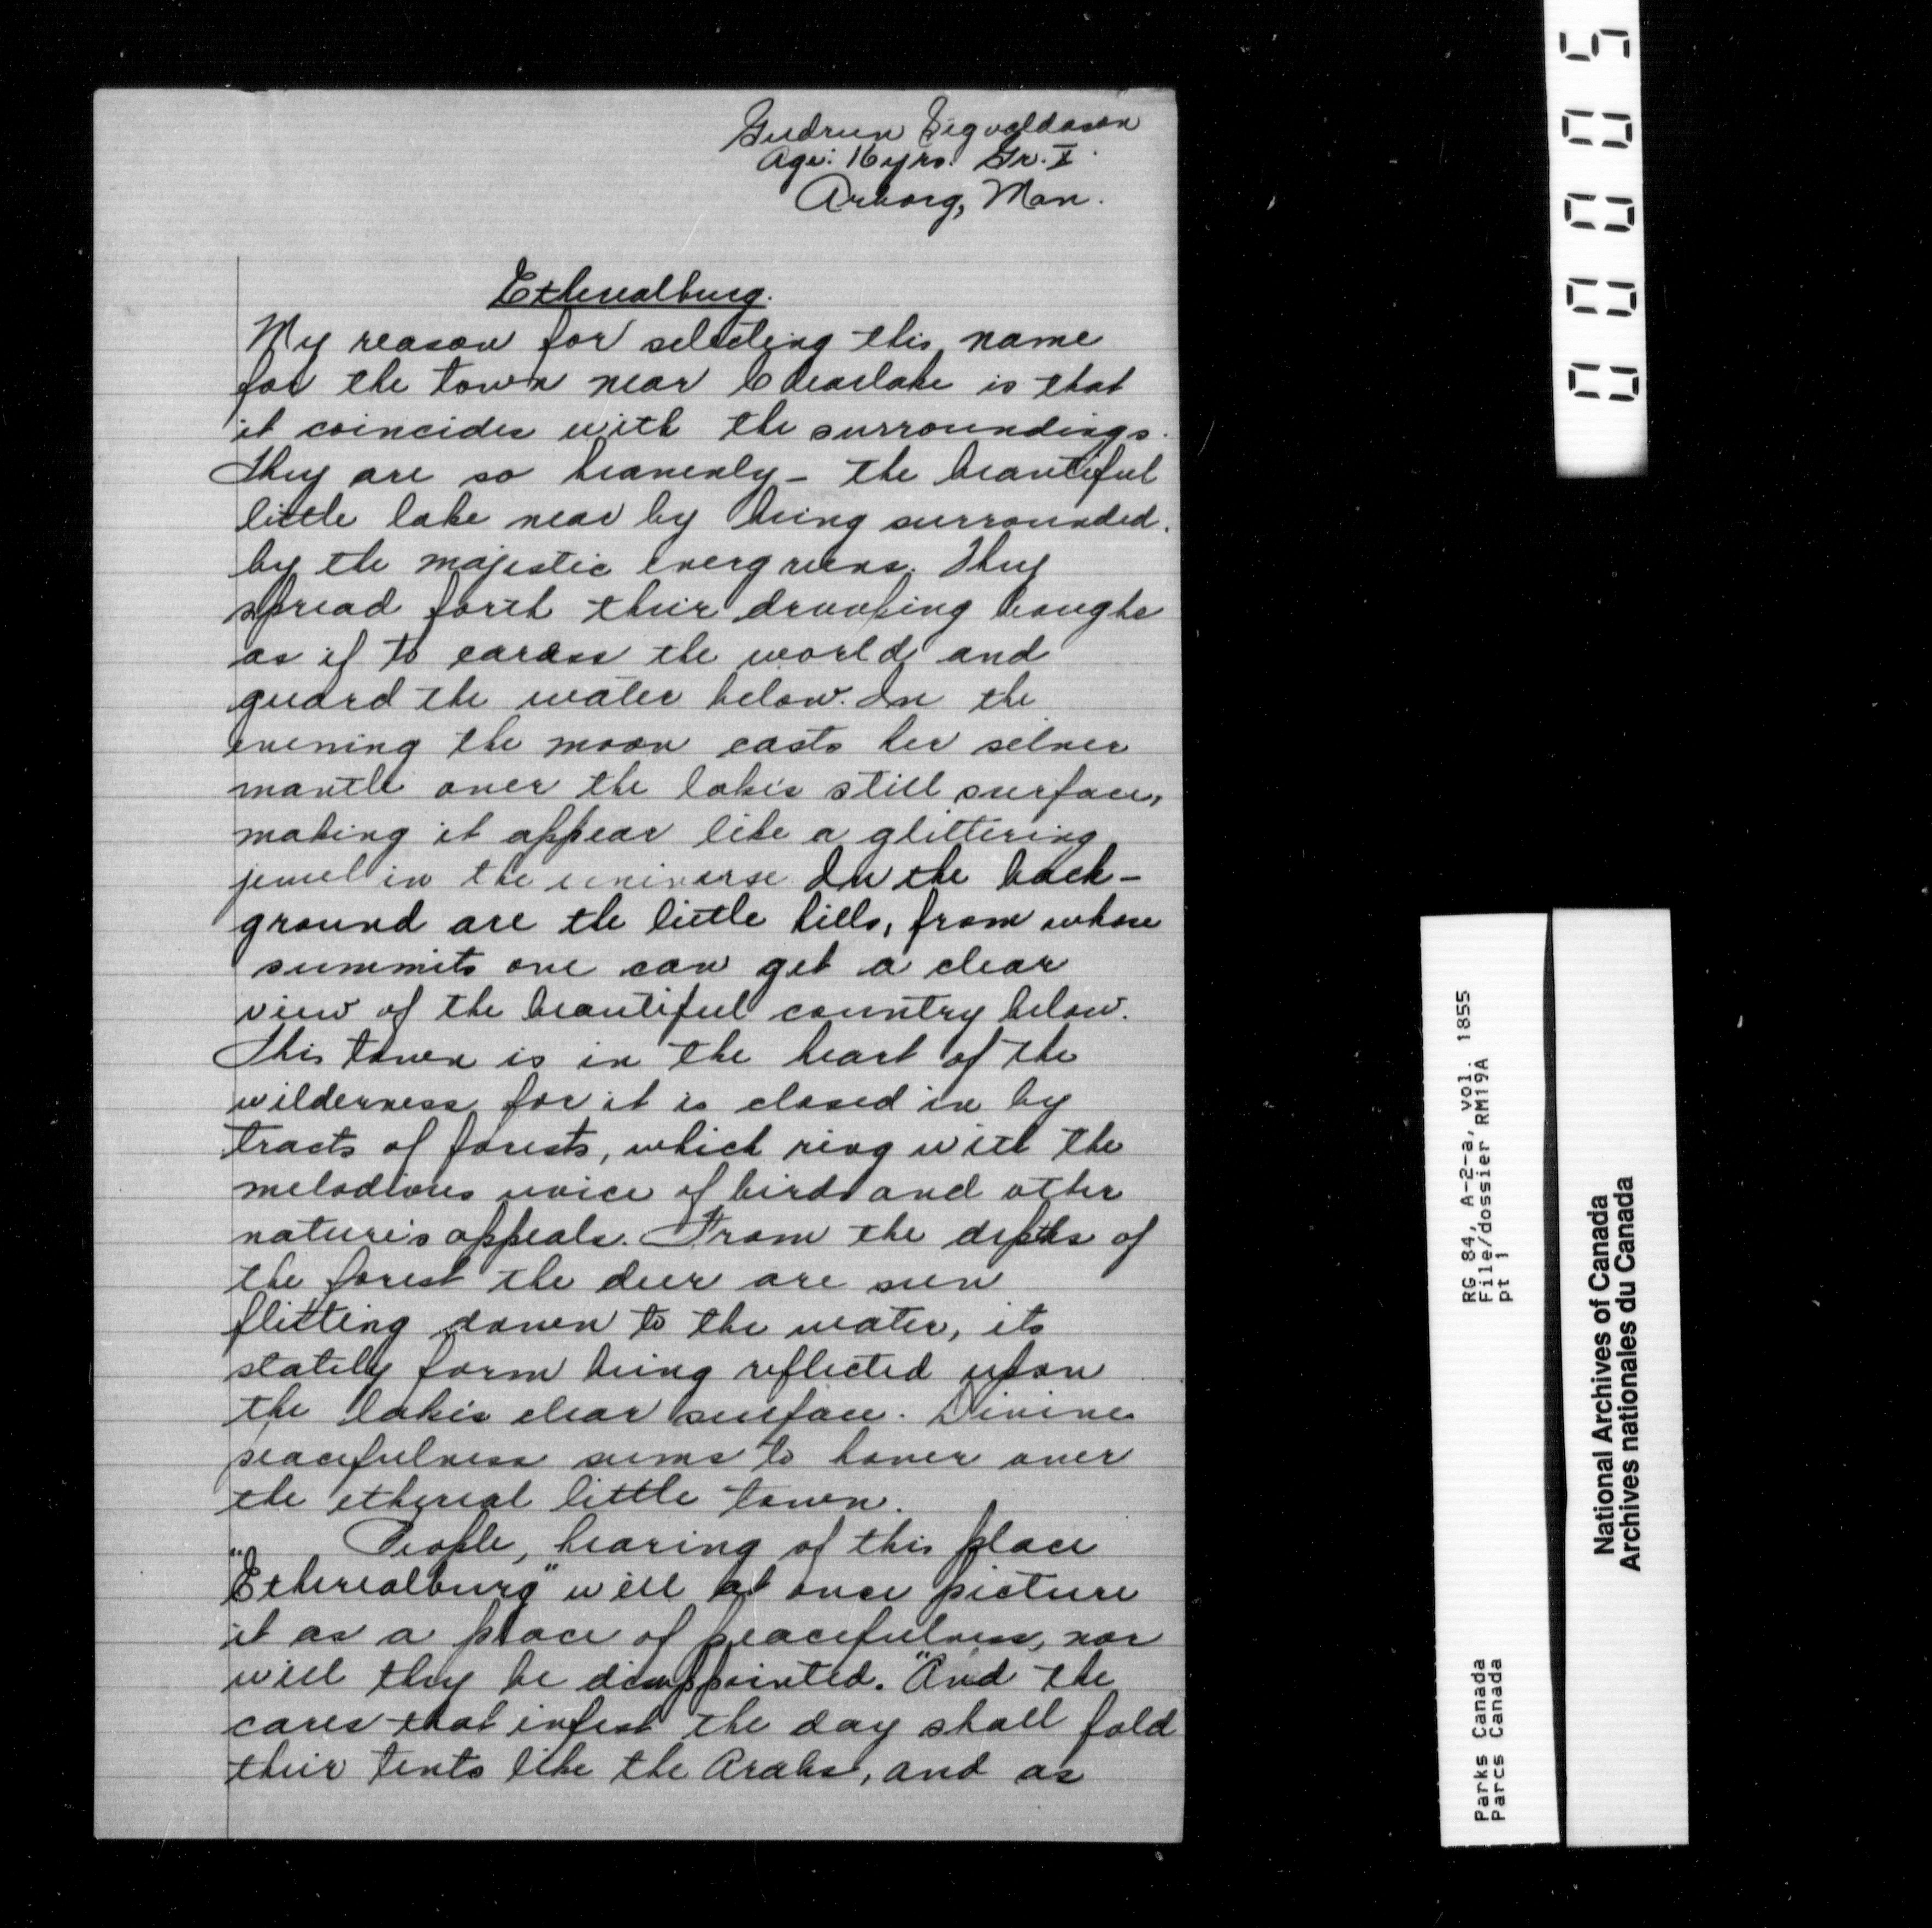 Gudrun Sigvaldason
Age: 16 yrs. Gr. X.
Arborg, Man.
Etherealburg.
My reason for selecting this name
for the town near Clearlake is that
it coincides with the surroundings.
They are so heavenly - the beautiful
little lake near by being surrounded.
by the majestic evergreens. They
spread forth their drooping boughs
as if to caress the world and
guard the water below. In the
evening the moon casts her silver
mantle over the lake's still surface,
making it appear like a glittering
jewel in the universe. In the back-
ground are the little hills, from whose
summits one can get a clear
view of the beautiful country below.
This town is in the heart of the
wilderness for it is closed in by
tracts of forests, which ring with the
melodious voice of birds and other
nature's appeals. From the depths of
the forest the deer are seen
flitting down to the water, its
stately form being reflected upon
the lake's clear surface. Divine
peacefulness seems to hover over
the ethereal little town.
People, hearing of this place
"Etherealburg" will at once picture
it as a place of peacefulness, nor
will they be disappointed. "And the
cares that infest the day shall fold
their tents like the Arabs, and as
00005
RG 84, A-2-a, vol. 1855
File/dossier RM19A
pt 1
Parks Canada
Parcs Canada
National Archives of Canada
Archives nationales du Canada